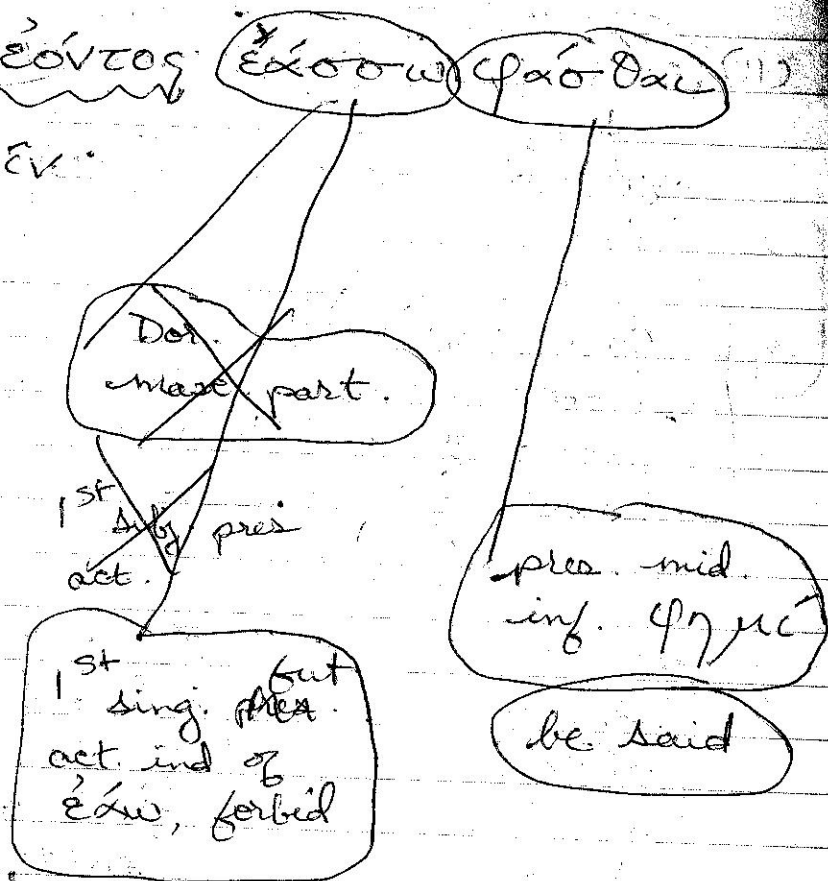 ἐόντος ἐάσσω φάσθαι (11)
ἐν·
Dor.
masc. part.
1st subj pres
act.
1st sing. fut
act. ind of
ἐάω, forbid
pres. mid.
inf. φημί
be said